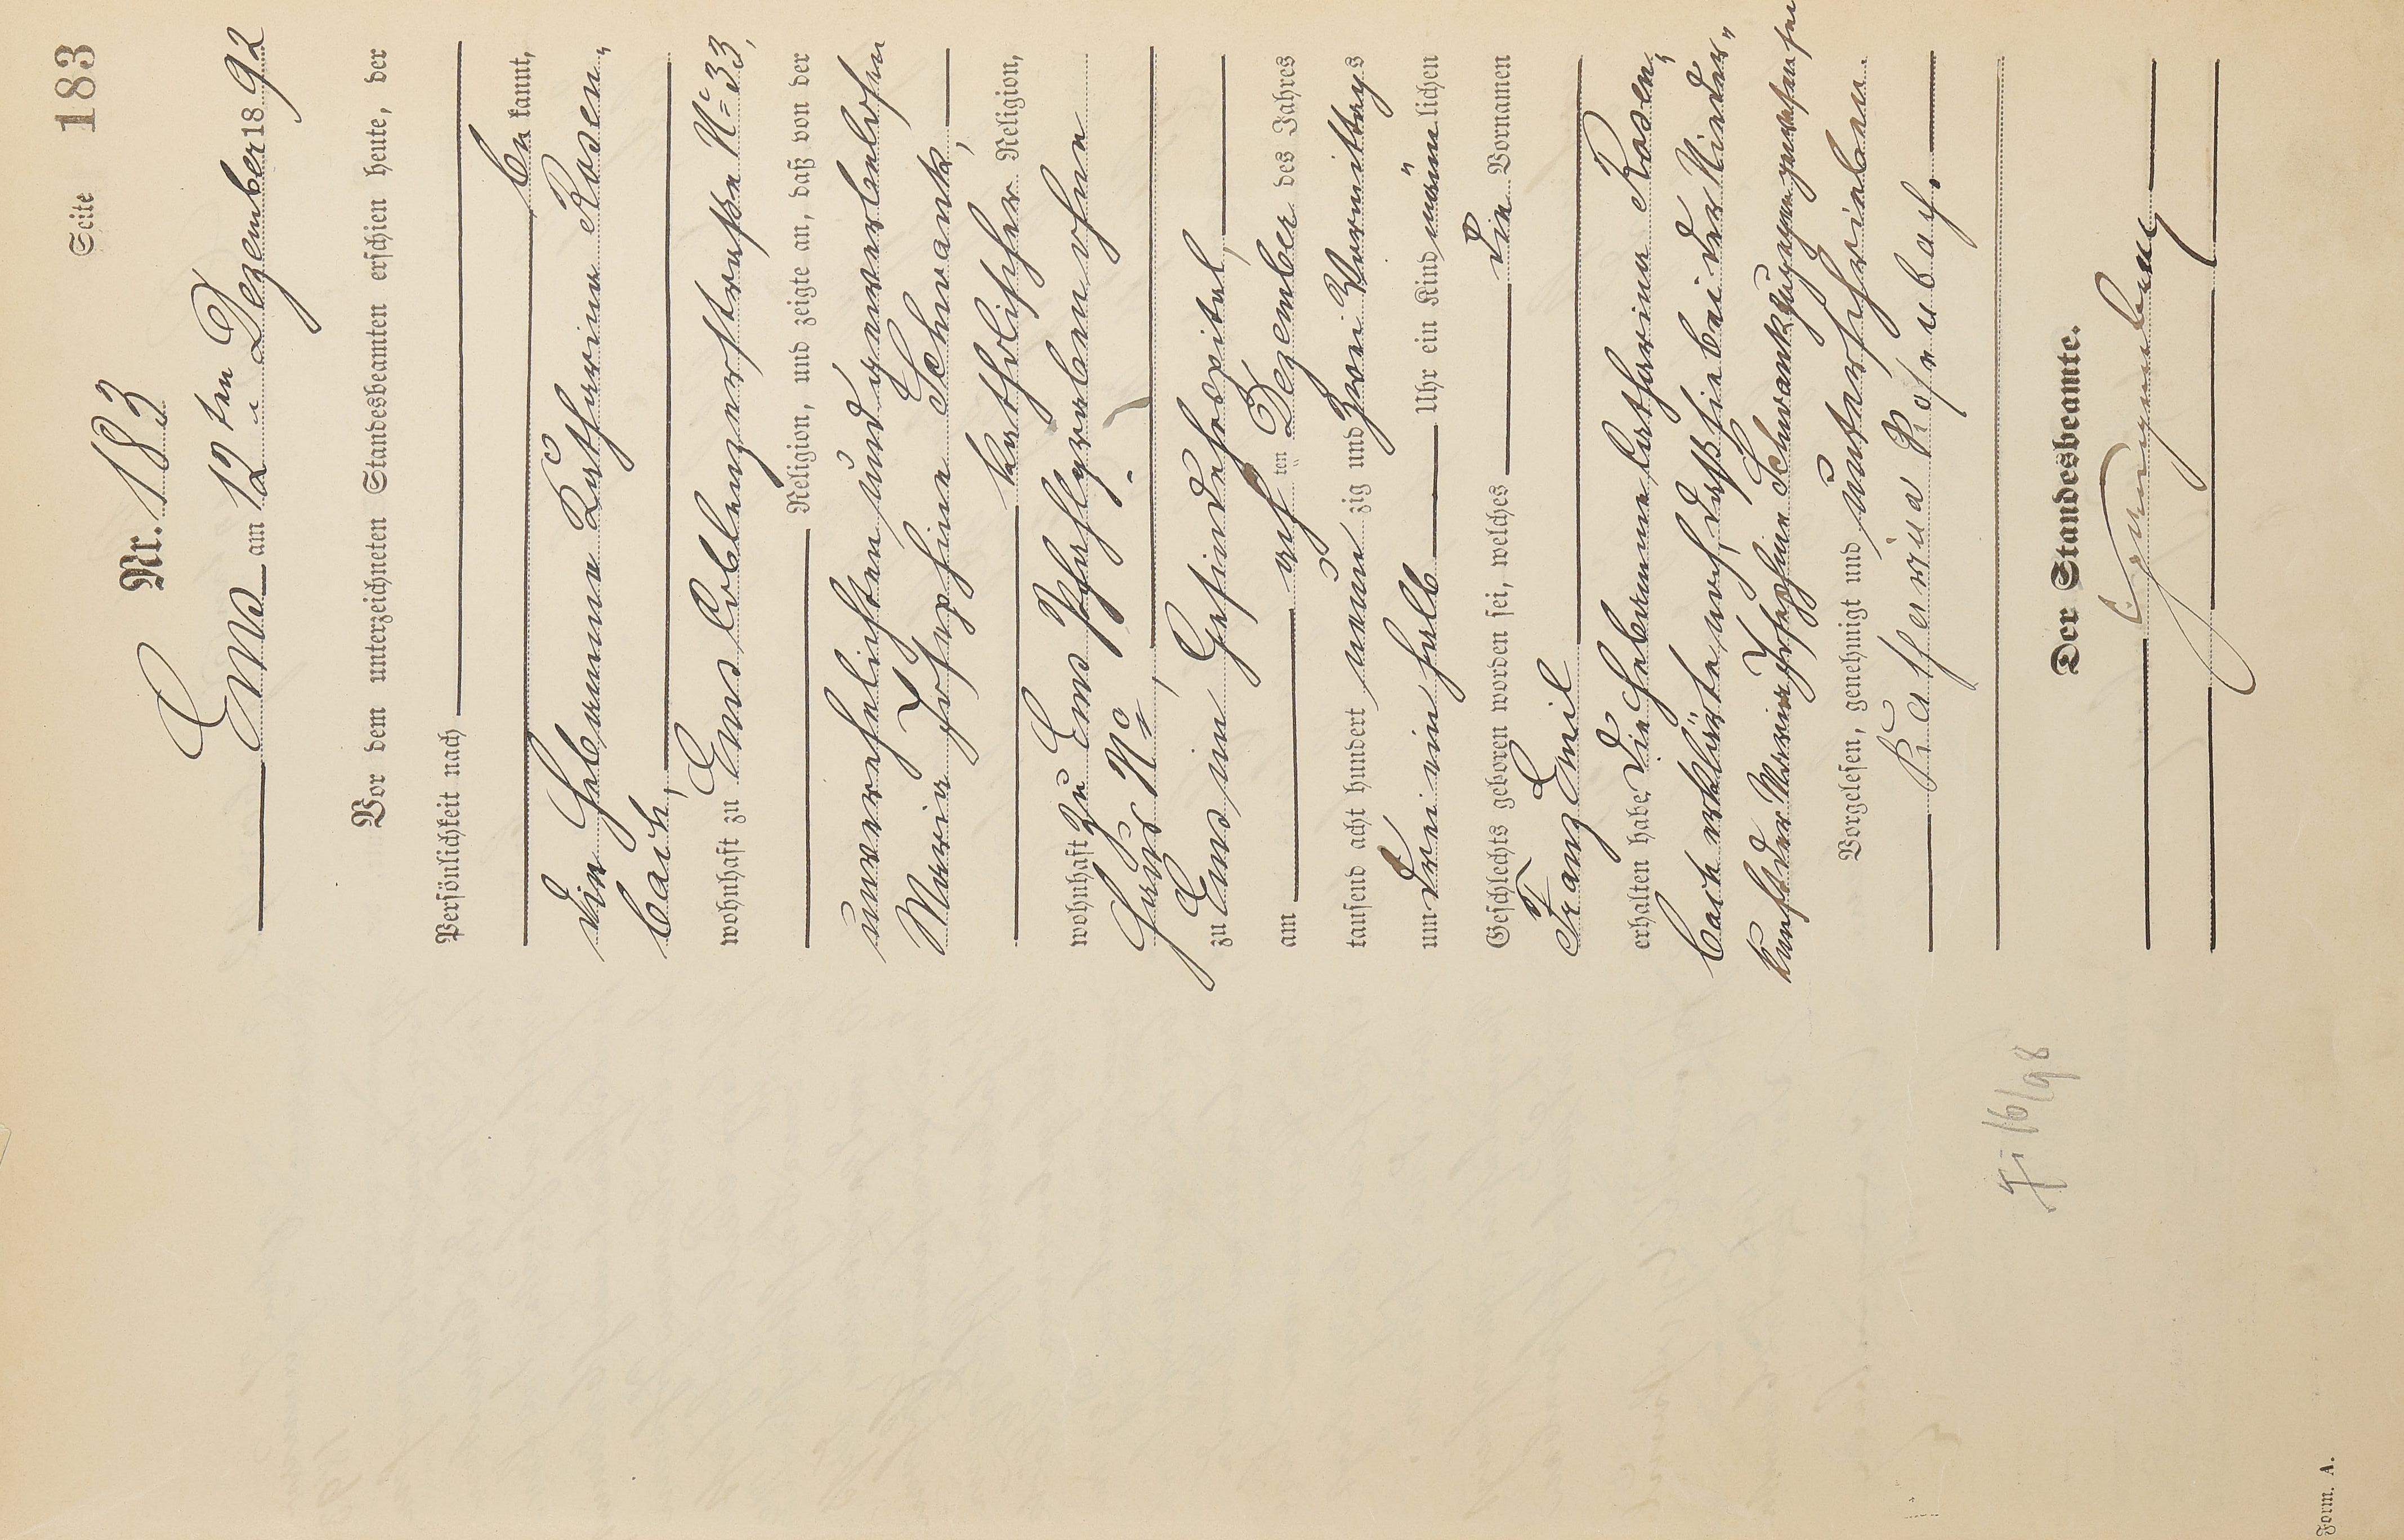 Seite 183
Nr. 183
Ems am 12 ten Dezember 1892
Vor dem unterzeichneten Standesbeamten erschien heute, der
Persönlichkeit nach
be kannt,
die Hebamme Katharina Rosen-
bach,
wohnhaft zu Ems Coblenzerstraße No 33,
Religion, und zeigte an, daß von der
unverehelichten und gewerbelosen
Maria Josephine Schwank,
katholischer Religion,
wohnhaft zu Ems Pfahlgraben ohne
Haus No,
zu Ems im Gesindehospital,
am acht ten Dezember des Jahres
tausend acht hundert neun zig und zwei Vormittags
um drei ein halb Uhr ein Kind männlichen
Geschlechts geboren worden sei, welches die Vornamen
Franz Emil
erhalten habe. Die Hebamme Catharina Rosen-
bach erklärte noch, daß sie bei der Nieder-
kunft der Maria Josephine Schwank zugegen gewesen sei
Vorgelesen, genehmigt und unterschrieben
Katharina Rosenbach.
Der Standesbeamte.
Form. A.